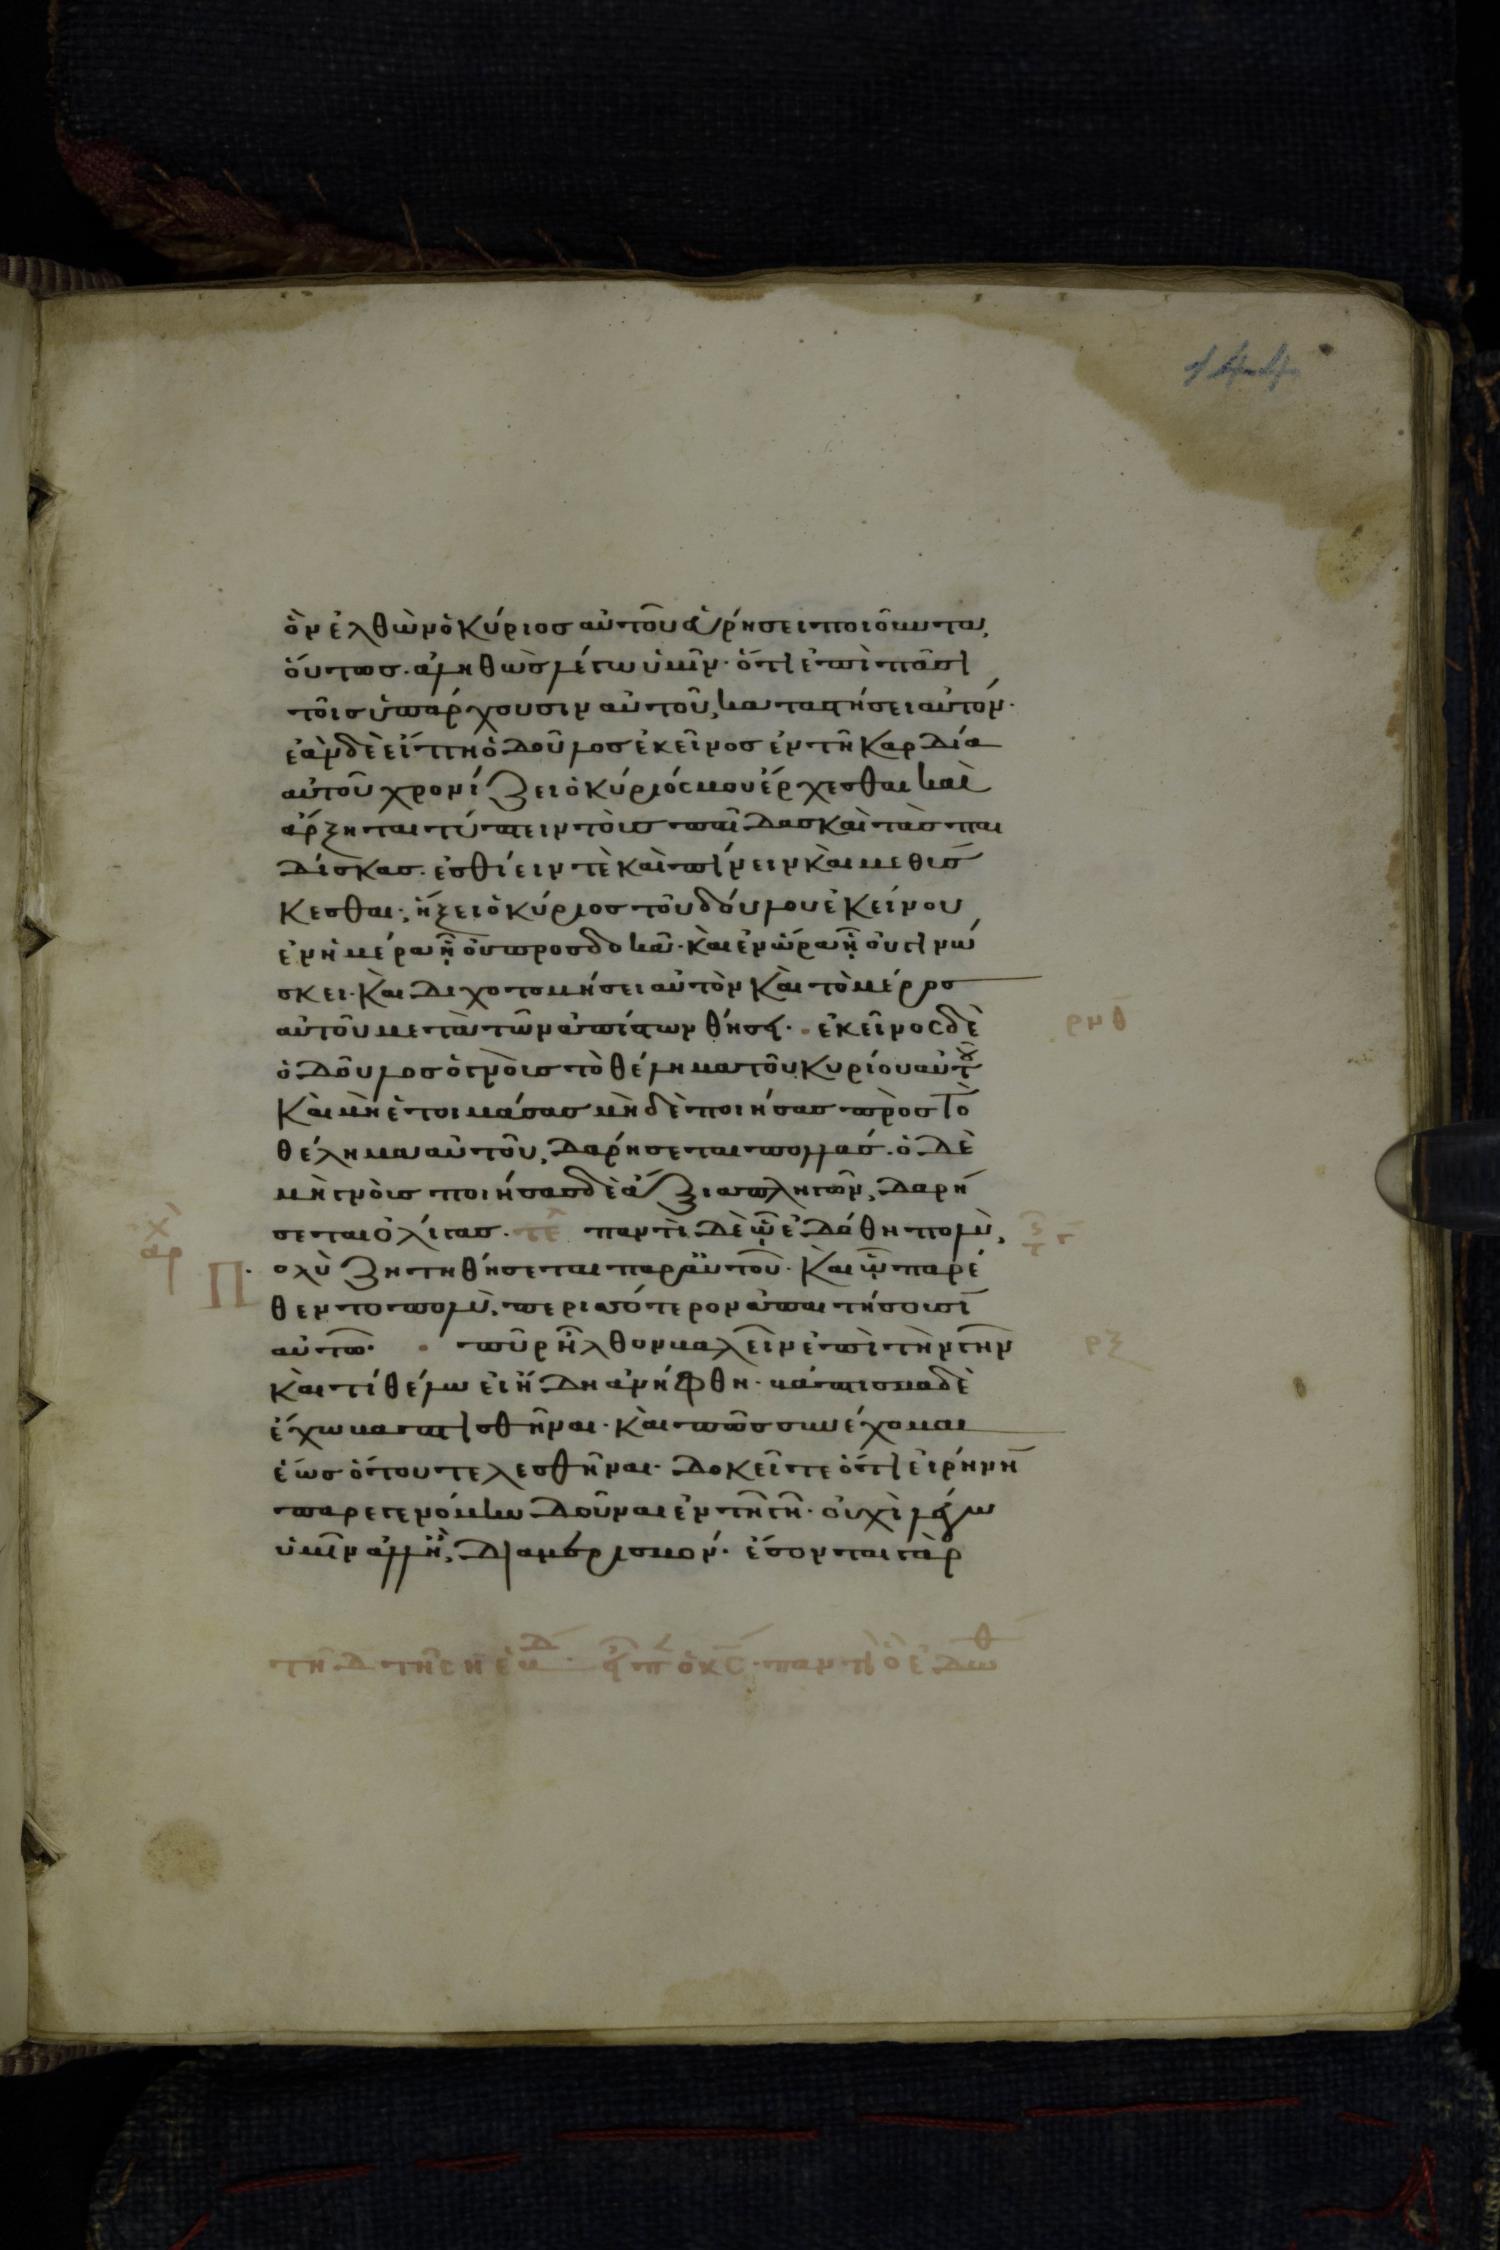 144
ὃν ἐλθὼν ὁ κύριος αὐτοῦ εὑρήσει ποιοῦντα,
οὕτως. ἀληθῶς λέγω ὑμῖν. ὅτι ἐπὶ πᾶσι
τοῖς ὑπάρχουσιν αὐτοῦ, καταστήσει αὐτόν.
ἐὰν δὲ εἴπη ὁ δοῦλος ἐκεῖνος ἐν τῆ καρδία
αὐτοῦ χρονίζει ὁ κύριός μου ἔρχεσθαι καὶ
ἄρξηται τύπτειν τοὺς παῖδας καὶ τὰς παι
δίσκας. ἐσθίειν τὲ καὶ πίνειν καὶ μεθισ
κεσθαι, ἥξει ὁ κύριος τοῦ δούλου ἐκείνου
ἐν ἡμέρα ἧ οὐ προσδοκᾶ. καὶ ἐν ὥρα ἧ οὐ γινώ
σκει. καὶ διχοτομήσει αὐτὸν καὶ τὸ μέρος
αὐτοῦ μετὰ τῶν ἀπίστων θήσει. ἐκεῖνος δὲ
ρνθ
ὁ δοῦλος ὁ γνοὺς τὸ θέλημα τοῦ κυρίου αὐτοῦ
καὶ μὴ ἑτοιμάσας μὴδὲ ποιήσας πρὸς τὸ
θέλημα αὐτοῦ, δαρήσεται πολλάς. ὁ δὲ
μὴ γνοὺς ποιήσας δὲ ἄξια πληγῶν, δαρή
σεται ὀλίγας. τε παντὶ δὲ ὧ ἐδόθη πολὺ,
αρχ
Πολὺ ζητηθήσεται παρ' αὐτοῦ. καὶ ὧ παρέ
θεντο πολὺ, περισσότερον ἀπαιτήσουσι
αὐτῶ. πῦρ ἦλθον βαλεῖν ἐπὶ τὴν γῆν
ρξ
καὶ τί θέλω εἰ ἤδη ἀνήφθη. βάπτισμα δὲ
ἔχω βαπτισθῆναι. καὶ πῶς συνέχομαι
ἕως ὅτου τελεσθῆναι. δοκεῖτε ὅτι εἰρήνη
παρεγενόμην δοῦναι ἐν τῆ γῆ. οὐχὶ λέγω
ὑμῖν ἀλλ' ἢ, διαμερισμόν. ἔσονται γὰρ